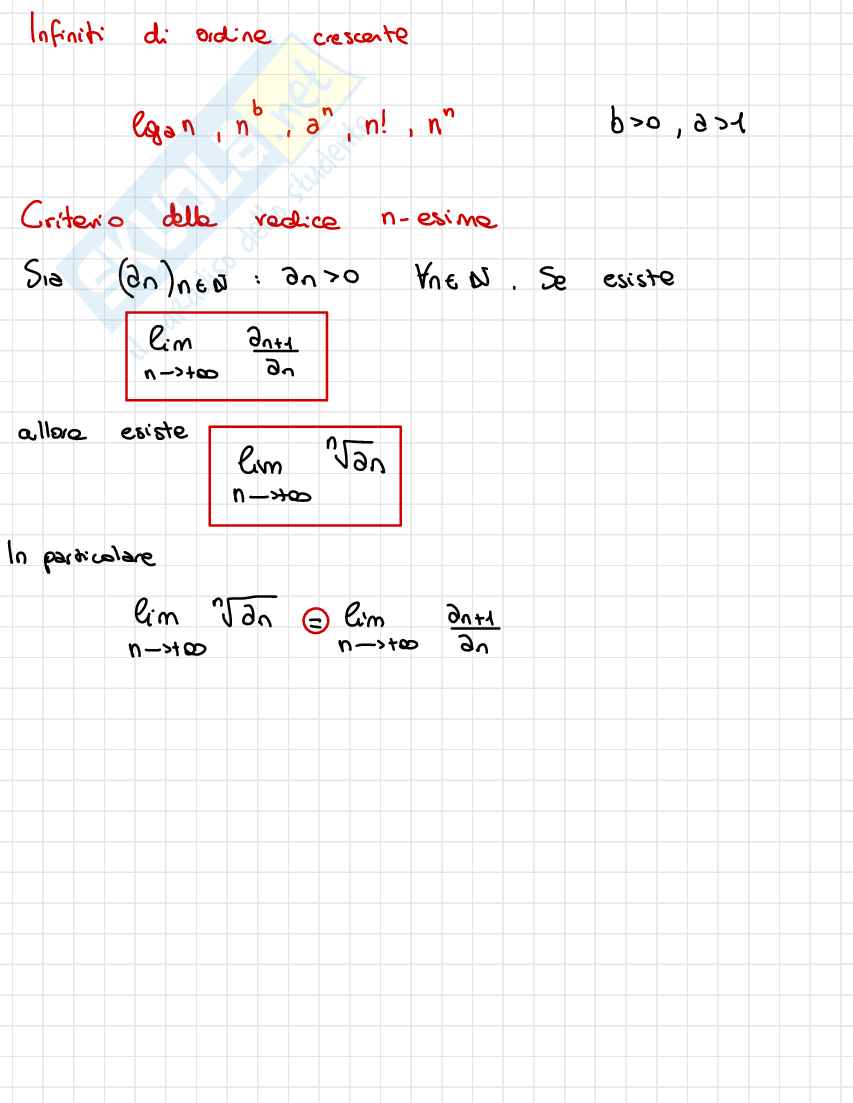 Infiniti di ordine crescente
logₐn , n^b , a^n , n! , n^n b>0 , a>1
Criterio della radice n-esima
Sia (an)n∈ℕ : an>0 ∀n∈ℕ . Se esiste
lim n→+∞ an+1/an
allora esiste
lim n→+∞ ⁿ√an
In particolare
lim n→+∞ ⁿ√an = lim n→+∞ an+1/an
SKUOLA.net
il paradiso dello studente